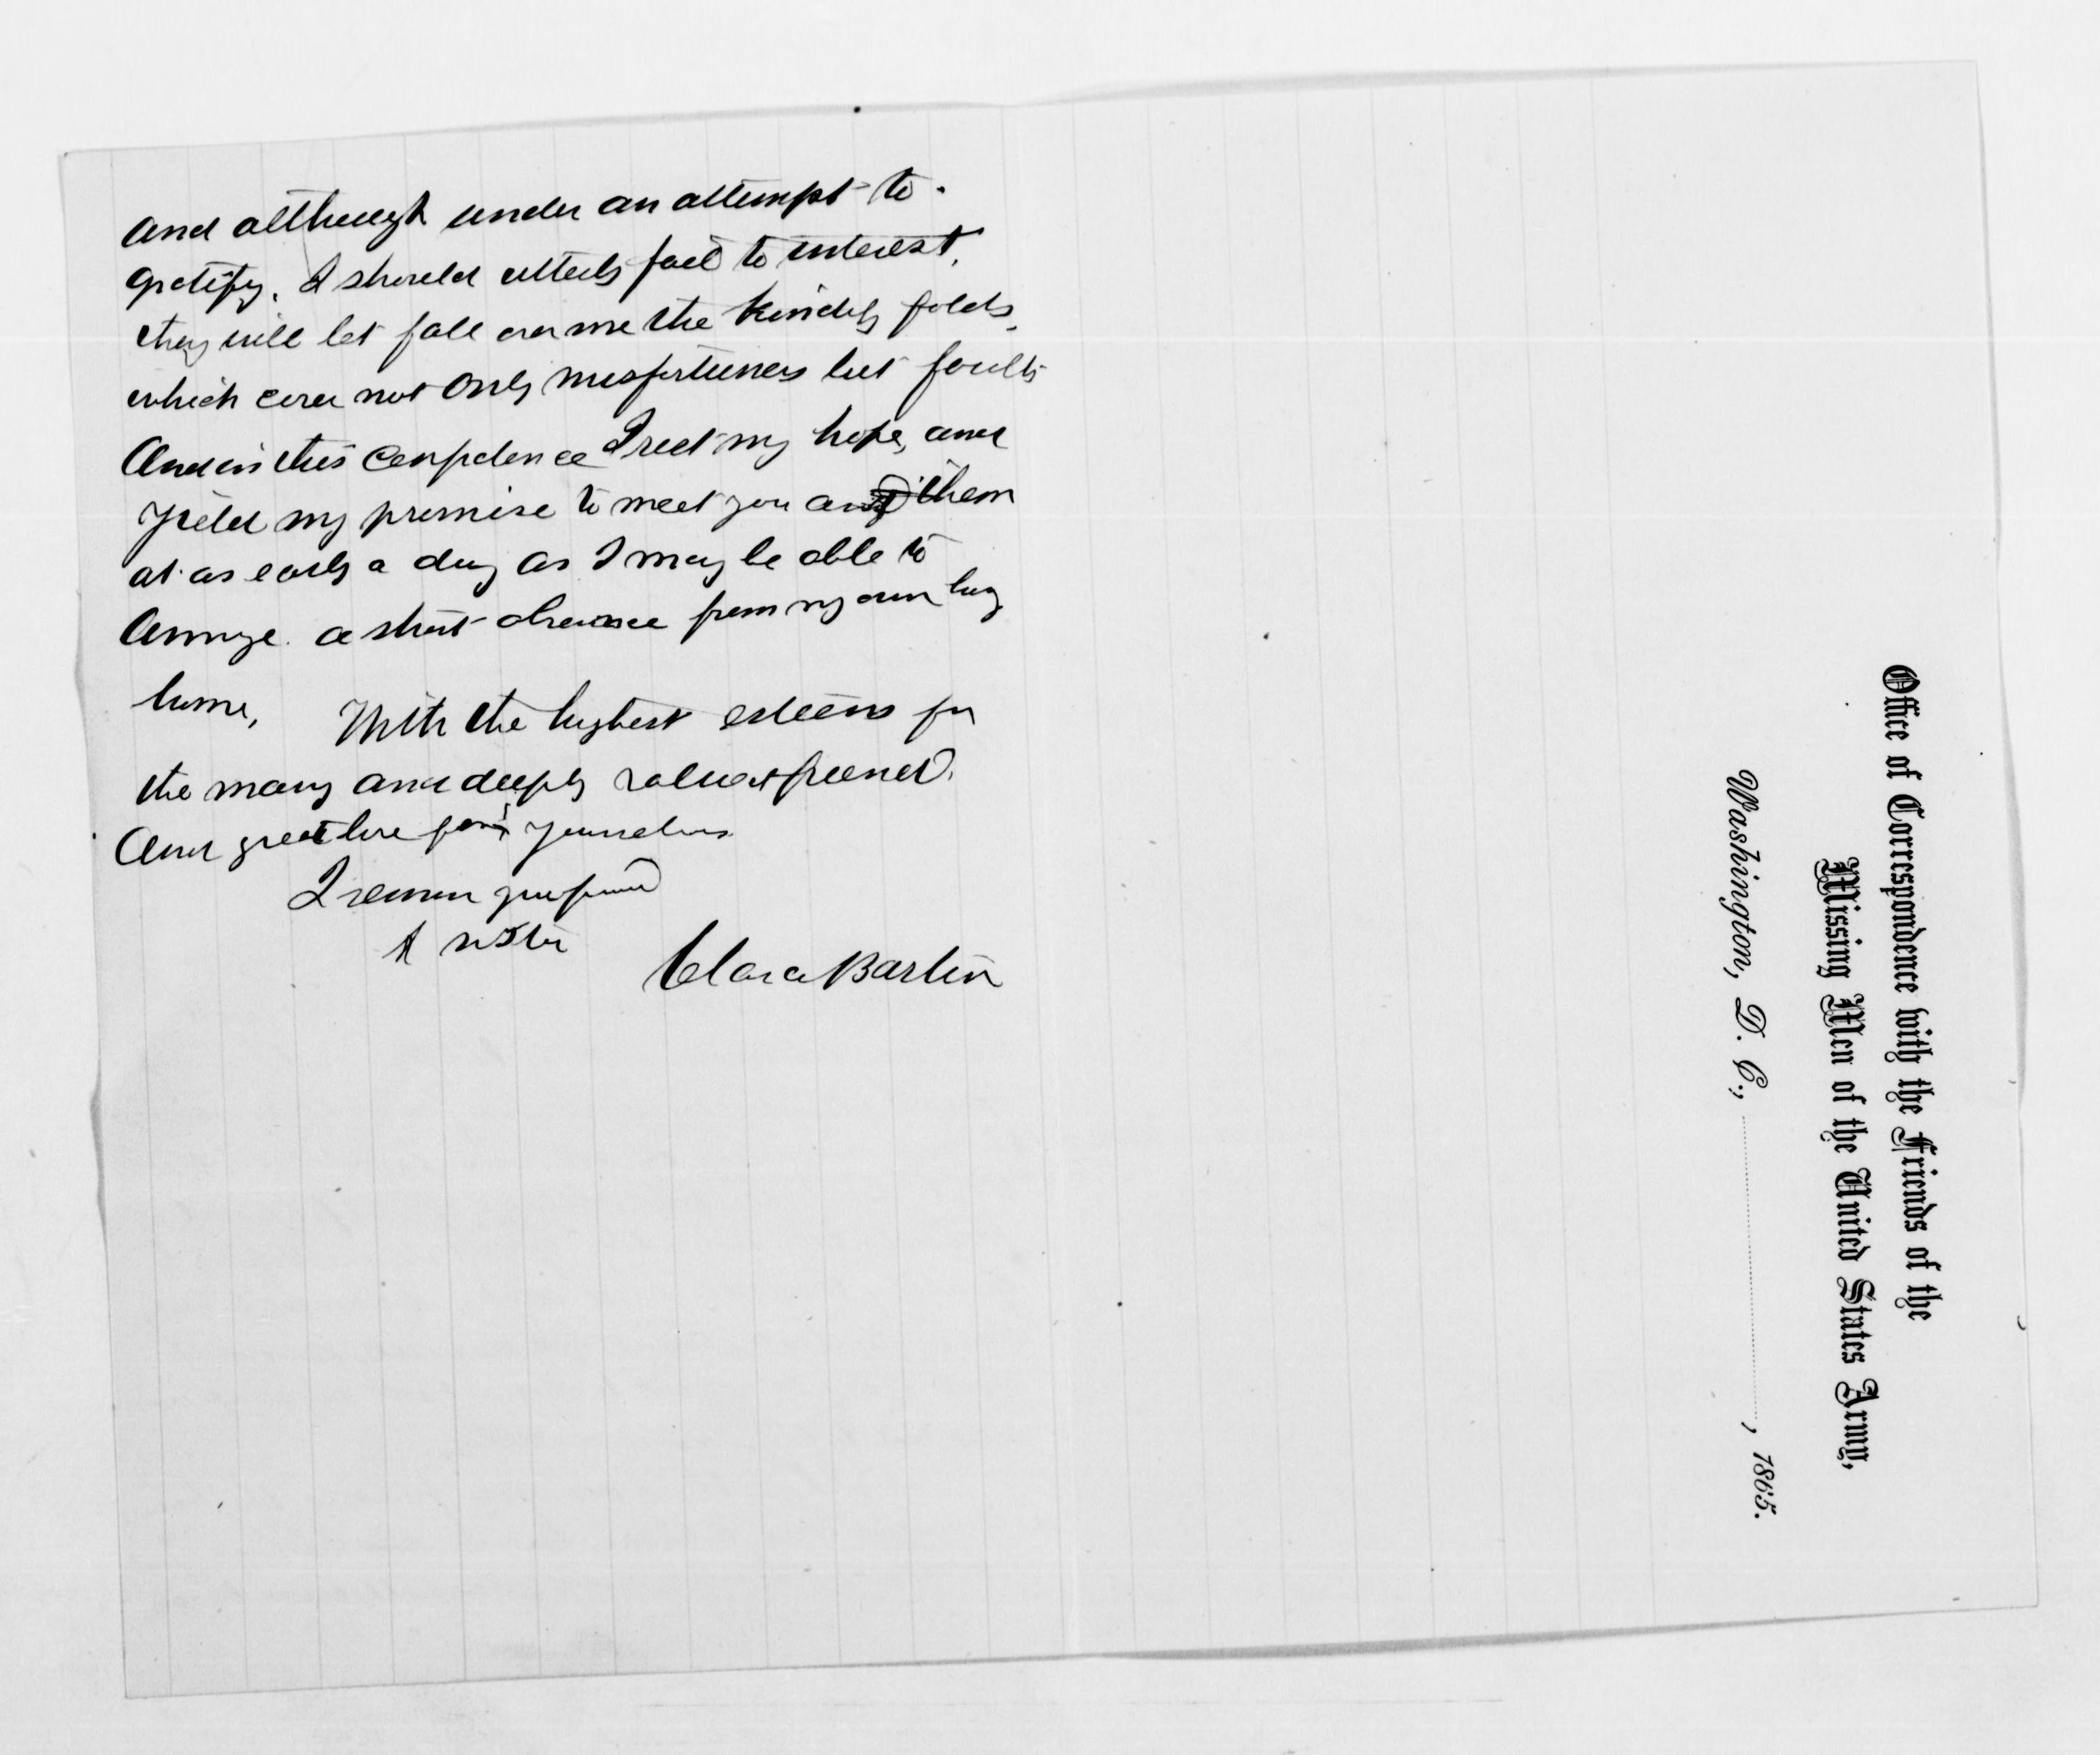 and although under an attempt to
gratify, I should utterly fail to interest,
they will let fall over me the kindly folds,
which cover not only misfortunes but faults
And in this confidence I rest my hope, and
yield my promise to meet you and them
at as early a day as I may be able to
arrange a short absence from my own busy
home, With the highest esteem for
the many and deeply valued friends
And great love for yourselves
I remain your friend
& sister
Clara Barton
Office of Correspondence with the Friends of the
Missing Men of the United States Army,
Washington, D. C., , 1865.